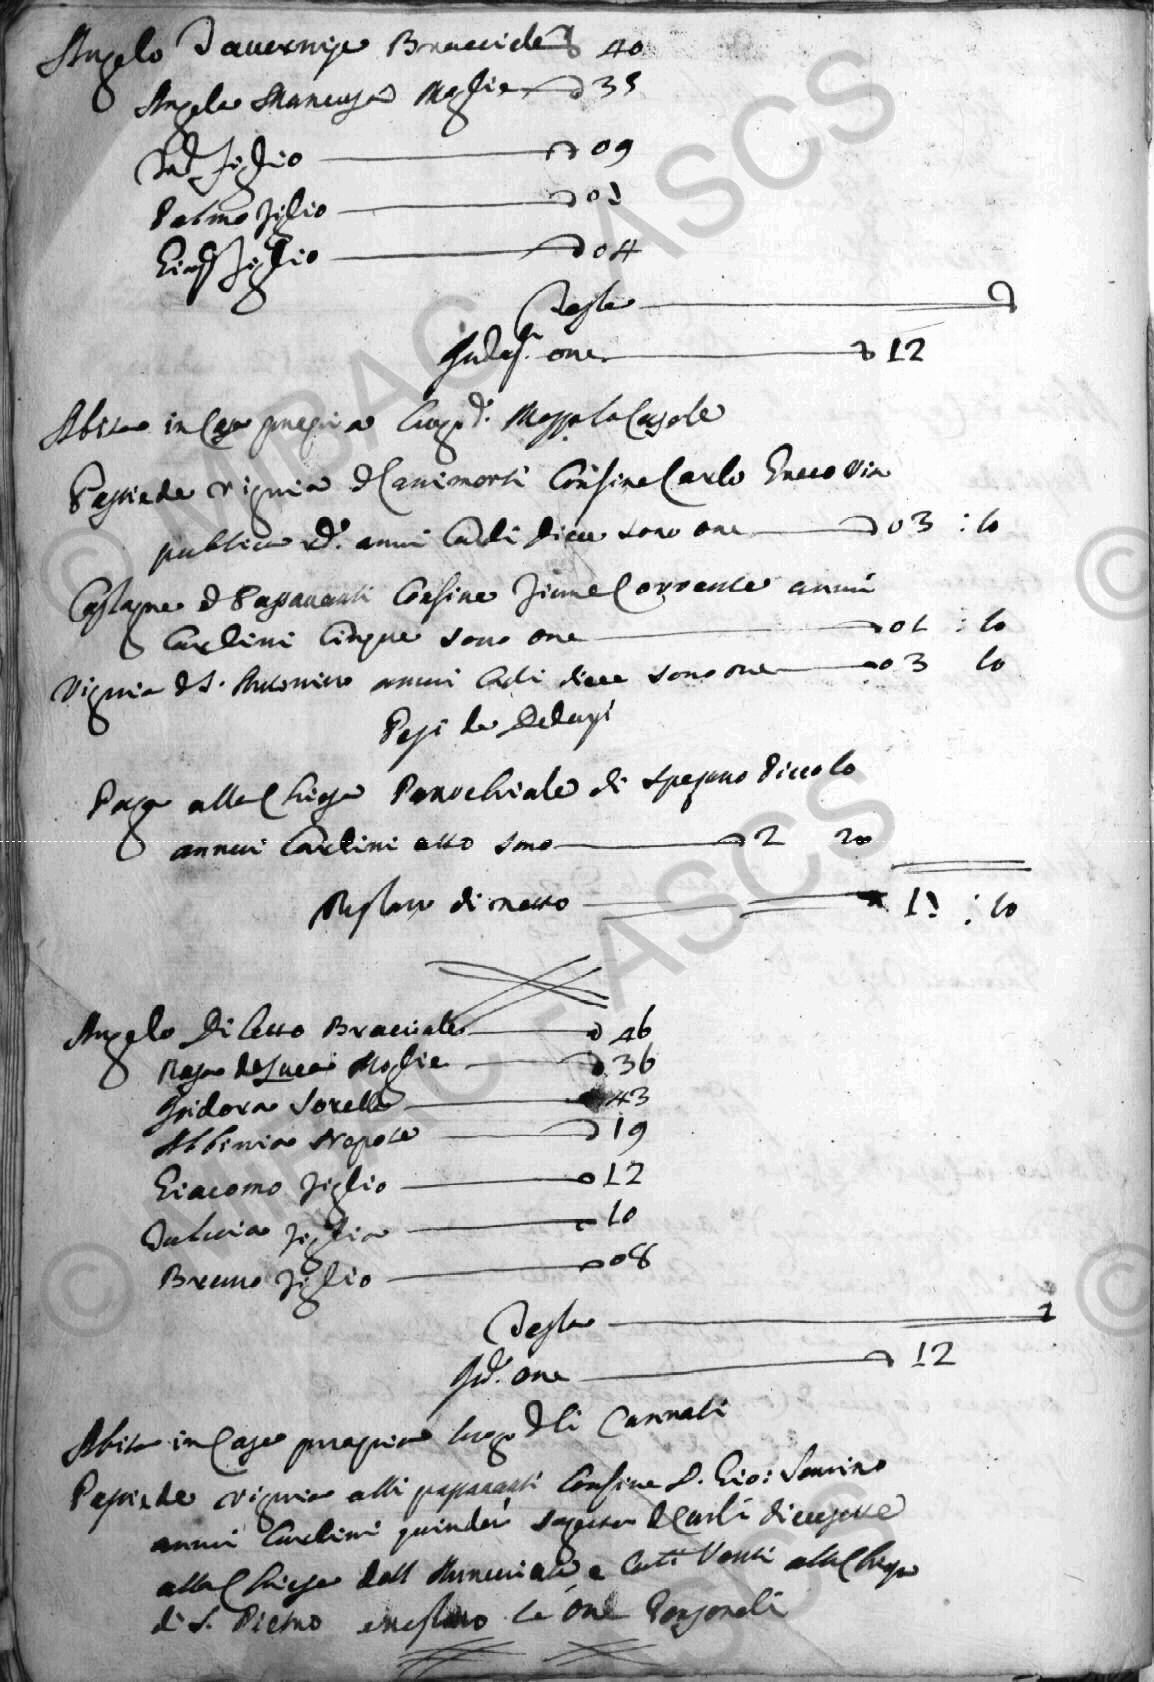 Angelo Tavernise Bracciale 40
Angela Mancuso Moglie 35
figlio 09
Palmo figlio 01
figlio 04
Testa
Ind. one 12
Abita in Casa propria luogo d. Casole
Possiede vigna d Canimorti Confine Carlo Greco via
publica d. annui Carli diece sono one 03 : 10
Castagne d Paparanti Confine fiume Corrente annui
Carlini Cinque sono one 01 : 10
Vigna d S. Antonino annui Carli diece sono one 03 10
Pesi da Dedursi
Paga alla Chiesa Parochiale di Spezano Piccolo
annui Carlini otto sono 2 20
Restano di netto 13 : 10
Angelo Di Cetto Bracciale 46
Rosa de Luca Moglie 36
Isidora Sorella 43
Albinia Nepote 19
Giacomo figlio 12
Fulvia figlia 10
Bruno figlio 08
Testa
Ind. one 12
Abita in Casa propria luogo d li Cannati
Possiede vigna alli paparanti Confine S. Gio: Sonnino
annui Carlini quindeci d Carli diecesette
alla Chiesa dell Annunciata e Carli Venti alla Chiesa
di S. Pietro e restano le one Personali
© MIBAC - ASCS
© MIBAC - ASCS
©
©